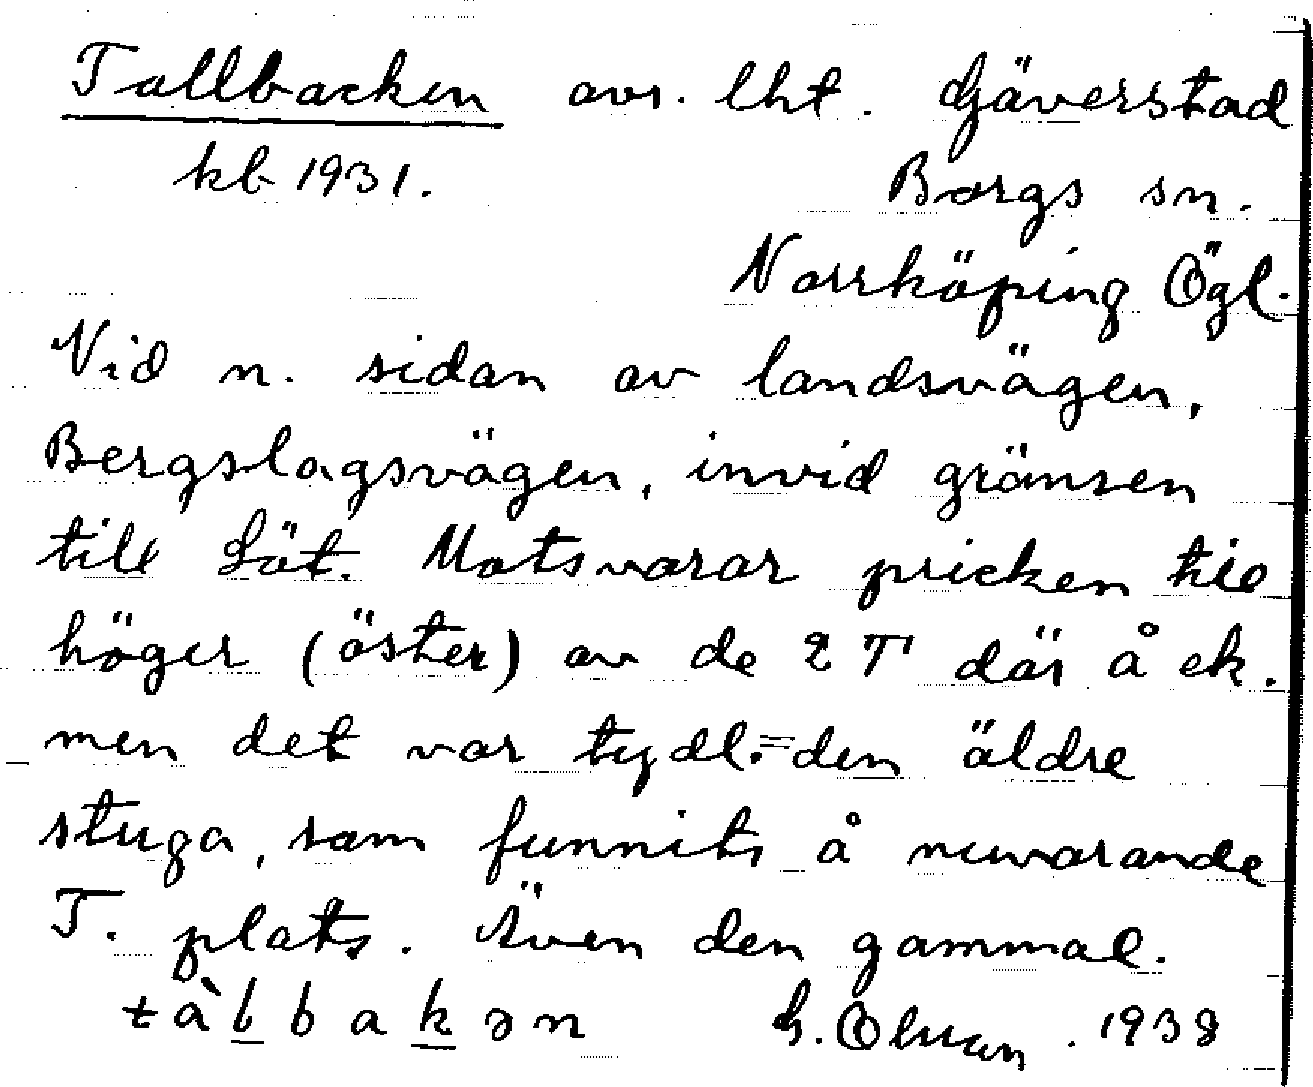 Tallbacken avs. lht. Gäverstad
kb 1931.
Borgs sn.
Norrköping Ögl.
Vid n. sidan av landsvägen,
Bergslagsvägen, invid gränsen
till Löt. Motsvarar pricken till
höger (öster) av de 2 T där å ek.
men det var tydl. = den äldre
stuga, som funnits å nuvarande
T. plats. Även den gammal.
tàlbakən
G. 1938